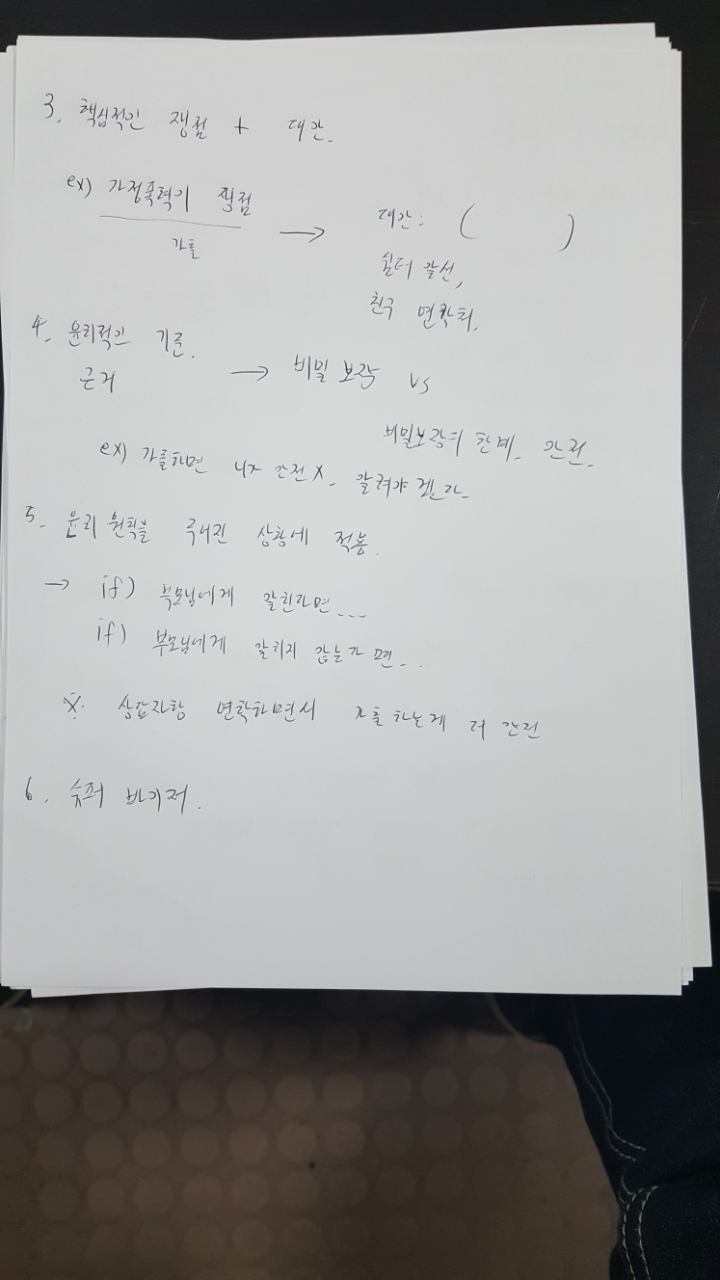 3. 핵심적인 쟁점 + 대안.
ex) 가정폭력이 쟁점 → 대안: ( )
가출
쉼터 알선,
친구 연락처.
4. 윤리적인 기준.
근거 → 비밀보장 vs
비밀보장의 한계. 안전.
ex) 가출하면 너가 안전 X. 알려야겠다.
5. 윤리 원칙을 주어진 상황에 적용.
→ if) 부모님에게 알린다면...
if) 부모님에게 알리지 않는다면...
※ 상담자랑 연락하면서 가출하는게 더 안전
6. 슈퍼바이저.